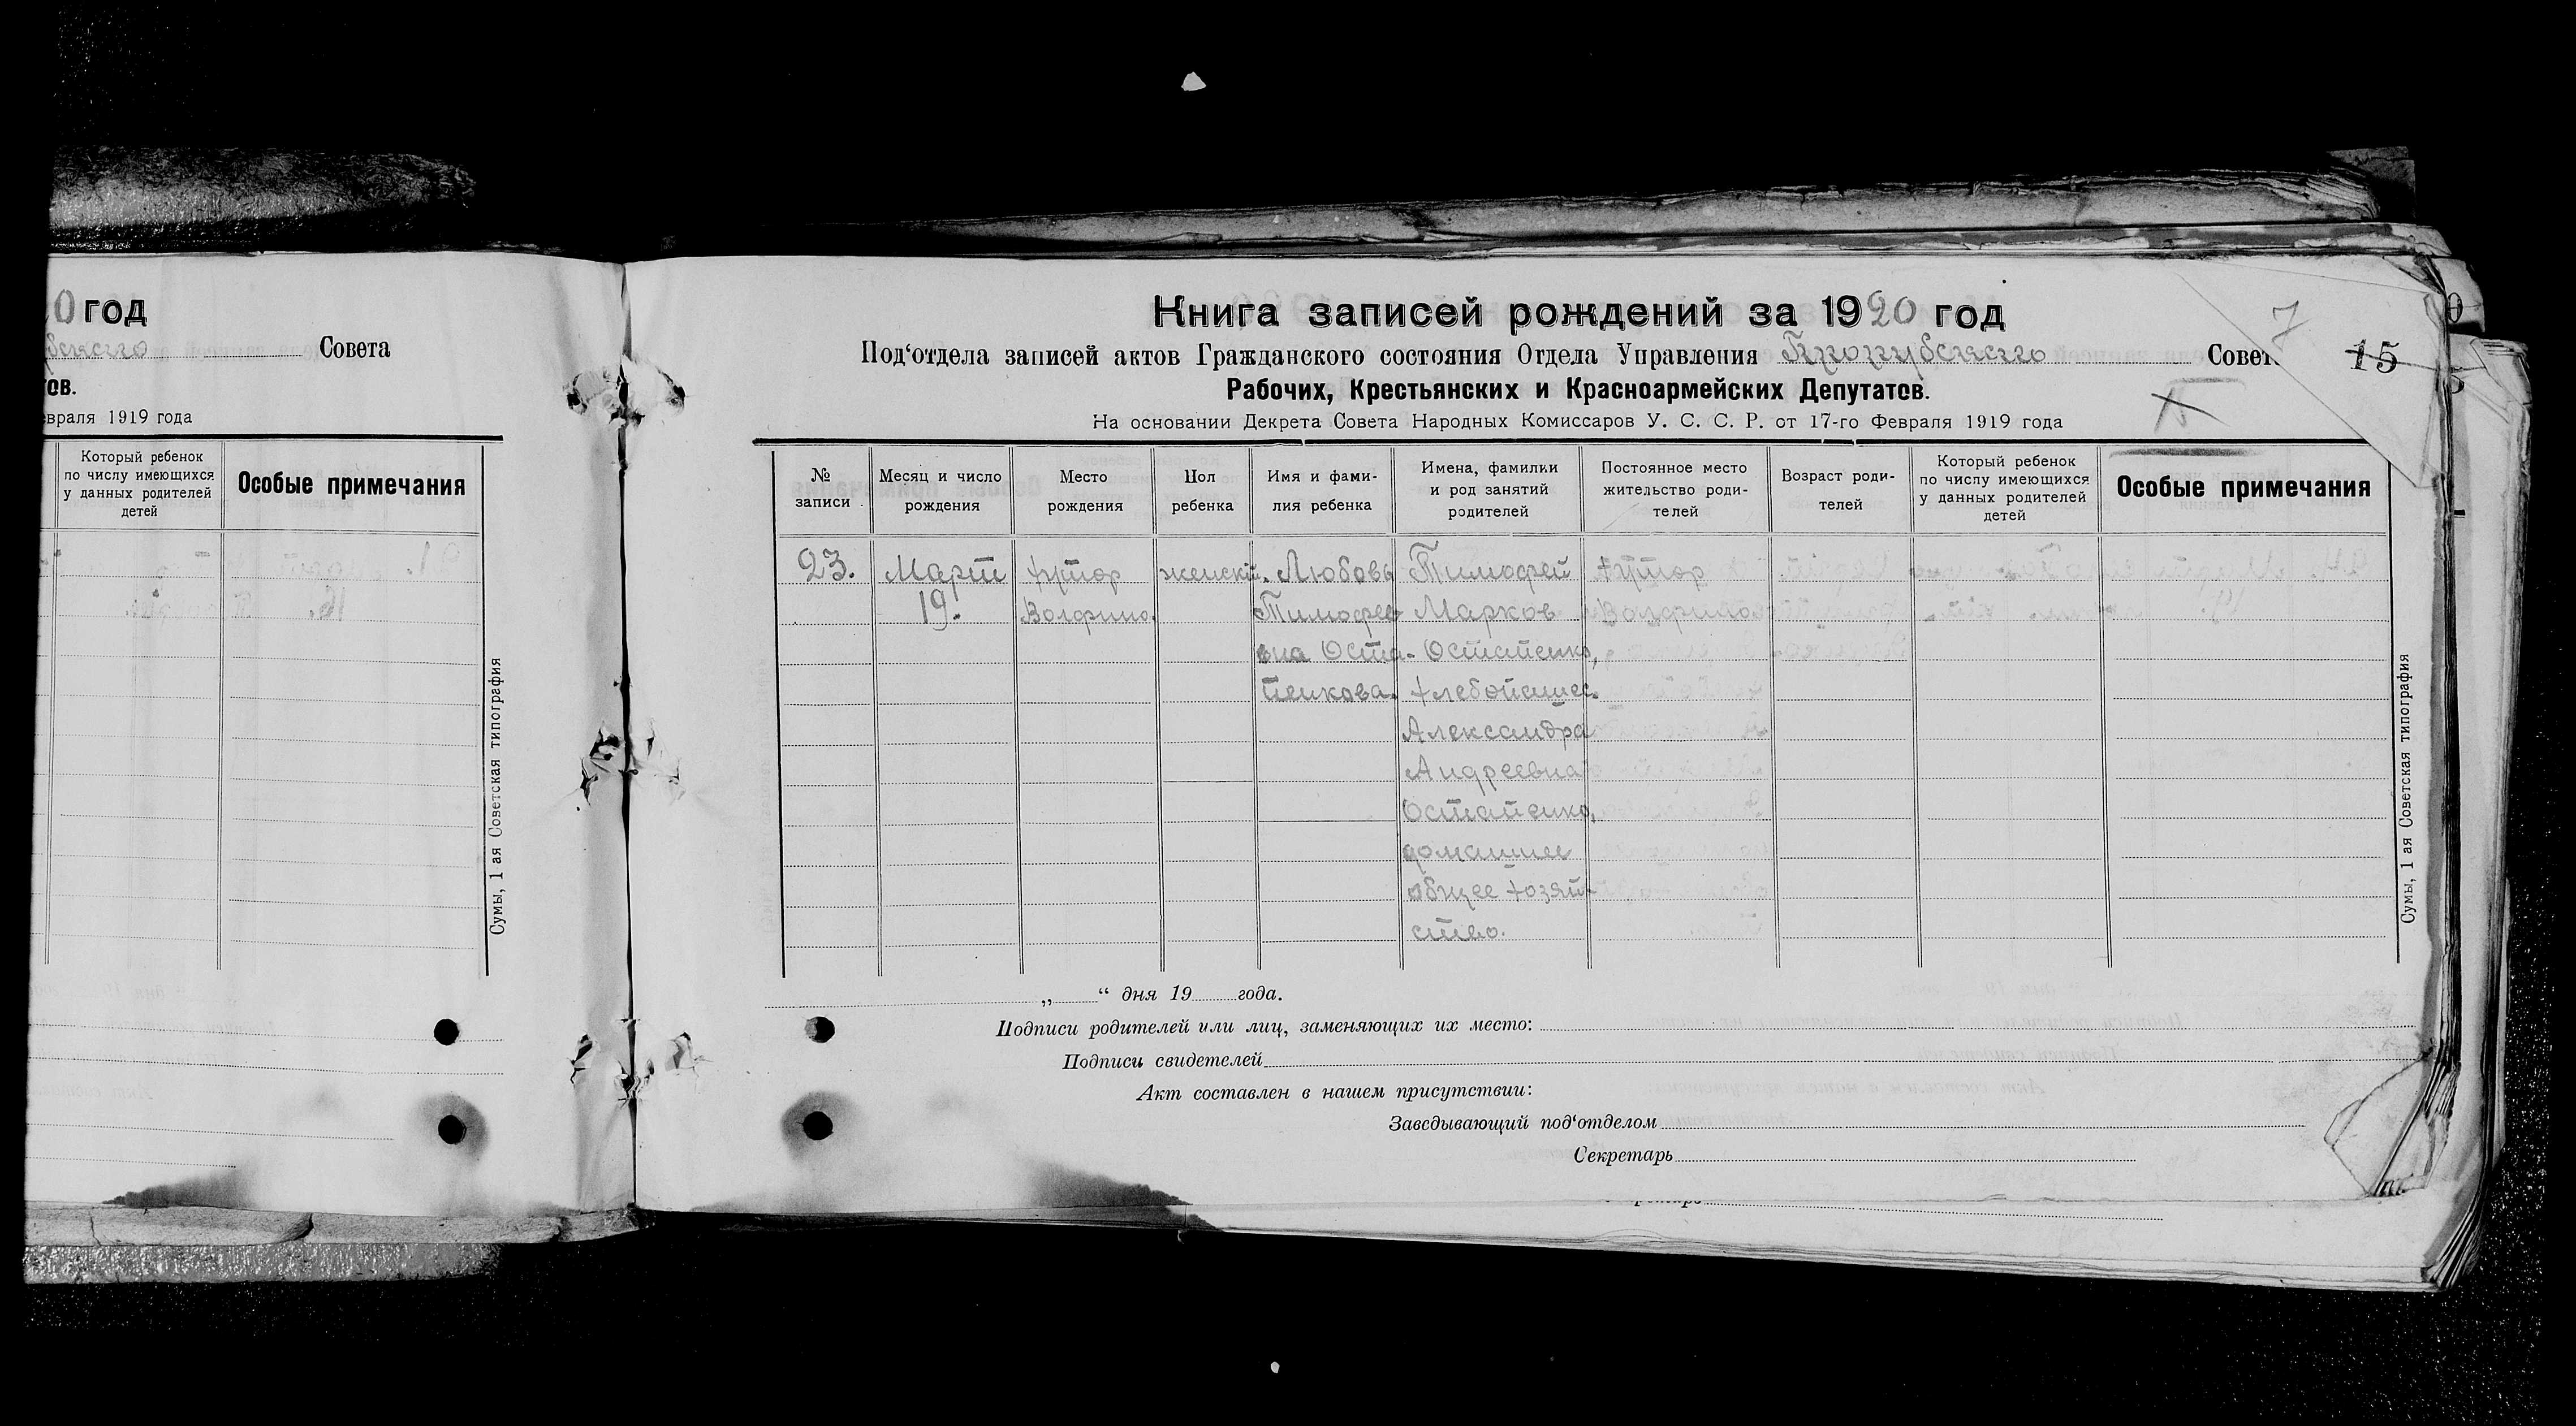 0 год
Совета
ов.
евраля 1919 года
Который ребенок
по числу имеющихся
у данных родителей
детей
Особые примечания
Сумы, 1 ая Советская типография
Книга записей рождений за 1920 год
Под‘отдела записей актов Гражданского состояния Отдела Управления Совет
Рабочих, Крестьянских и Красноармейских Депутатов.
На основании Декрета Совета Народных Комиссаров У. С. С. Р. от 17-го Февраля 1919 года
7
15
№
записи
Месяц и число
рождения
Место
рождения
Пол
ребенка
Имя и фами-
лия ребенка
Имена, фамилии
и род занятий
родителей
Постоянное место
жительство роди-
телей
Возраст роди-
телей
Который ребенок
по числу имеющихся
у данных родителей
детей
Особые примечания
23.
Март
19.
хутор
Волфино.
женский.
Любовь
Тимофее-
вна Оста-
пенкова.
Тимофей
Марков
Остапенко,
хлебопашес.
Александра
Андреевна
Остапенко,
домашнее
общее хозяй-
ство.
хутор
Волфино
„ “ дня 19 года.
Подписи родителей или лиц, заменяющих их место:
Подписи свидетелей
Акт составлен в нашем присутствии:
Заведывающий под‘отделом
Секретарь
Сумы, 1 ая Советская типография